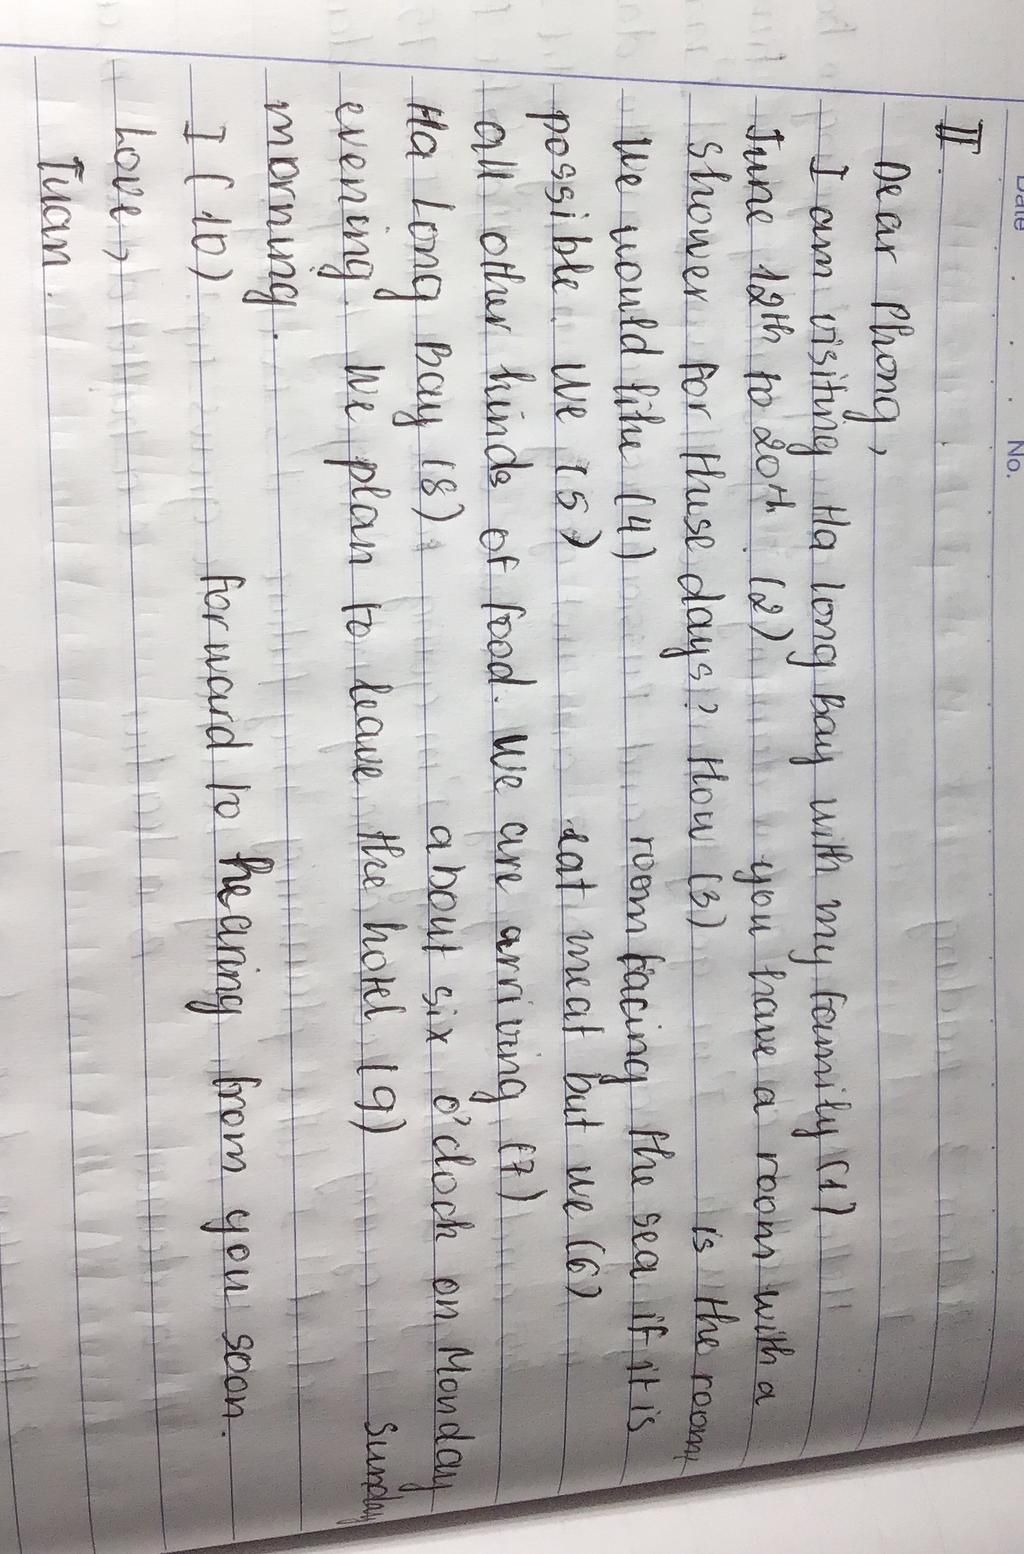 Date
No.
II.
Dear Phong,
I am visiting Ha long Bay with my family (1)
June 12th to 20th. (2) you have a room with a
shower for these days? How (3) is the room?
We would like (4) room facing the sea if it is
possible. We (5) eat meat but we (6)
all other kinds of food. We are arriving (7)
Ha long Bay (8) about six o'clock on Monday
evening. We plan to leave the hotel (9) Sunday
morning.
I (10) forward to hearing from you soon.
Love,
Tuan.